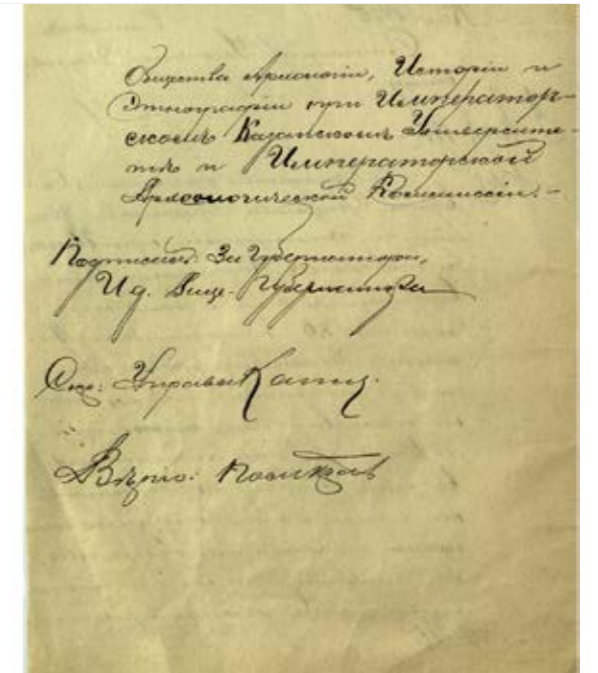 Общества Археологіи, Исторіи и
Этнографіи при Император-
скомъ Казанскомъ Университе-
тѣ и Императорской
Археологической Коммиссіи. -
Подписалъ: За Губернатора,
И. д. Вице-Губернатора
Вѣрно: